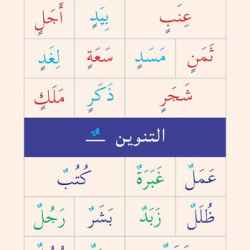 عِنَبٍ بِيَدٍ أَجَلٍ
ثَمَنٍ مَسَدٍ سَعَةٍ لِغَدٍ
شَجَرٍ ذَكَرٍ مَلَكٍ
التنوين ـٌ
عَمَلٌ غَبَرَةٌ كُتُبٌ
ظُلَلٌ زَبَدٌ بَشَرٌ رَجُلٌ